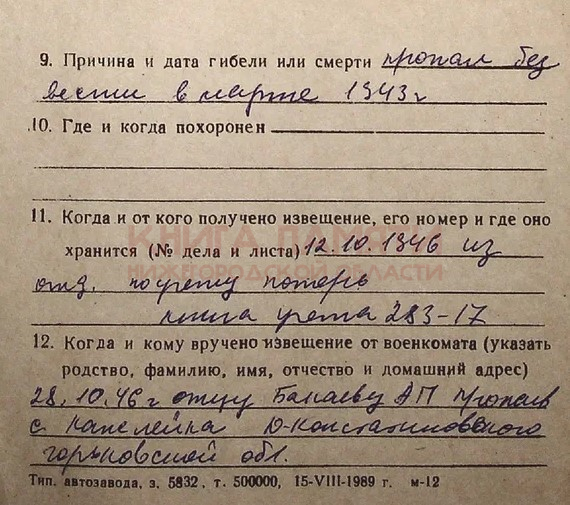 9. Причина и дата гибели или смерти пропал без
вести в марте 1943 г
10. Где и когда похоронен
11. Когда и от кого получено извещение, его номер и где оно
КНИГА ПАМЯТИ
хранится (№ дела и листа) 12.10.1946 из
НИЖЕГОРОДСКОЙ ОБЛАСТИ
отд. по учету потерь
книга учета 283-17
12. Когда и кому вручено извещение от военкомата (указать
родство, фамилию, имя, отчество и домашний адрес)
28.10.46 г отцу Бакаеву АП
с Капелейка Д-Константиновского
горьковской обл.
Тип. автозавода, з. 5832, т. 500000, 15-VIII-1989 г. м-12